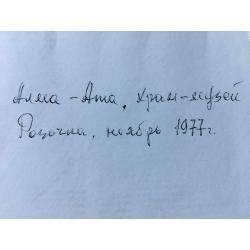 Алма-Ата, храм-музей
Розочка, ноябрь 1977г.